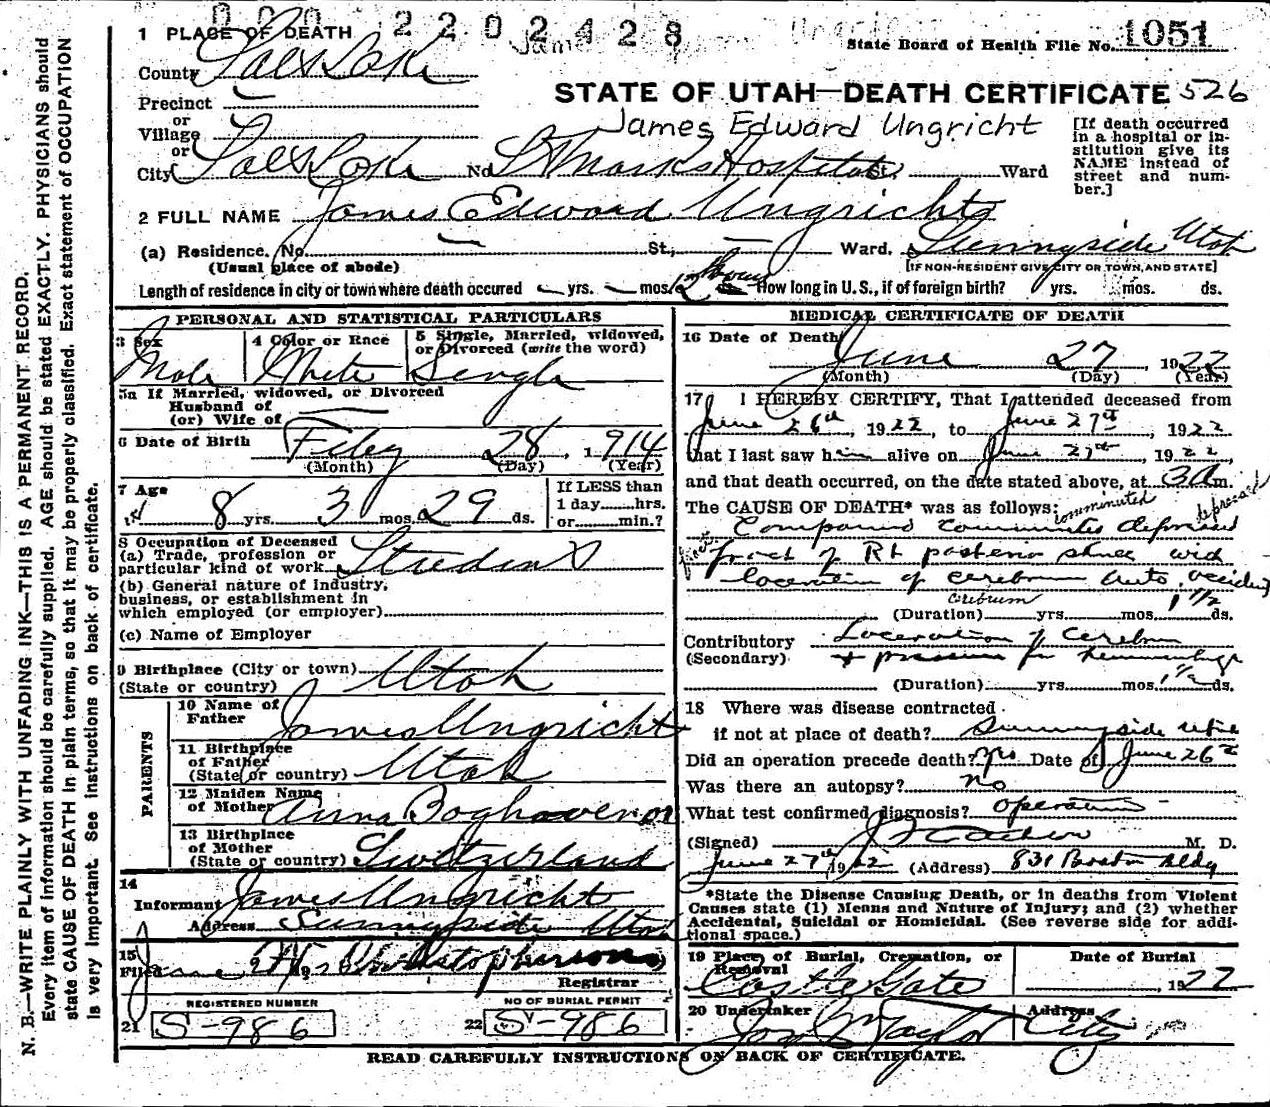 000 2202428
1 PLACE OF DEATH
State Board of Health File No. 1051
County Salt Lake
STATE OF UTAH—DEATH CERTIFICATE 526
Precinct
or
Village
or
James Edward Ungricht
[If death occurred in a hospital or institution give its NAME instead of street and number.]
City Salt Lake No St Marks Hospital St. Ward
2 FULL NAME James Edward Ungricht
(a) Residence. No. St., Ward. Sunnyside Utah
(Usual place of abode)
[IF NON-RESIDENT GIVE CITY OR TOWN, AND STATE]
Length of residence in city or town where death occurred yrs. mos. 12 hours How long in U. S., if of foreign birth? yrs. mos. ds.
PERSONAL AND STATISTICAL PARTICULARS
3 Sex
Male
4 Color or Race
White
5 Single, Married, widowed, or Divorced (write the word)
Single
5a If Married, widowed, or Divorced
Husband of
(or) Wife of
6 Date of Birth Feby 28, 1914
(Month) (Day) (Year)
7 Age
8 yrs. 3 mos. 29 ds.
If LESS than
1 day......hrs.
or......min.?
8 Occupation of Deceased
(a) Trade, profession or
particular kind of work Student
(b) General nature of industry,
business, or establishment in
which employed (or employer)
(c) Name of Employer
9 Birthplace (City or town) Utah
(State or country)
PARENTS
10 Name of
Father James Ungricht
11 Birthplace
of Father
(State or country) Utah
12 Maiden Name
of Mother Anna Boghavenor
13 Birthplace
of Mother
(State or country) Switzerland
14
Informant James Ungricht
Address Sunnyside Utah
15
Filed June 27, 19
Registrar
REGISTERED NUMBER
21 S-986
NO OF BURIAL PERMIT
22 S-986
MEDICAL CERTIFICATE OF DEATH
16 Date of Death
June 27 1922
(Month) (Day) (Year)
17 I HEREBY CERTIFY, That I attended deceased from
June 26th, 1922, to June 27th, 1922
that I last saw him alive on June 27th, 1922,
and that death occurred, on the date stated above, at 3 A m.
The CAUSE OF DEATH* was as follows:
comminuted depressed
Compound comminuted depressed
fract
fract of Rt posterior skull with
laceration of cerebrum Auto accident
cerebrum
(Duration) yrs. mos. 1 1/2 ds.
Contributory Laceration of cerebrum
(Secondary) + pressure fr hemmorhage
(Duration) yrs. mos. 1 1/2 ds.
18 Where was disease contracted
if not at place of death? Sunnyside Utah
Did an operation precede death? yes Date of June 26th
Was there an autopsy? no
What test confirmed diagnosis? operation
(Signed) M. D.
June 27th 1922 (Address) 831 Boston Bldg
*State the Disease Causing Death, or in deaths from Violent
Causes state (1) Means and Nature of Injury; and (2) whether
Accidental, Suicidal or Homicidal. (See reverse side for addi-
tional space.)
19 Place of Burial, Cremation, or
Removal
Castle Gate
Date of Burial
, 1922
20 Undertaker
Taylor
Address
City
READ CAREFULLY INSTRUCTIONS ON BACK OF CERTIFICATE.
N. B.—WRITE PLAINLY WITH UNFADING INK—THIS IS A PERMANENT RECORD.
Every item of information should be carefully supplied. AGE should be stated EXACTLY. PHYSICIANS should
state CAUSE OF DEATH in plain terms, so that it may be properly classified. Exact statement of OCCUPATION
is very important. See instructions on back of certificate.